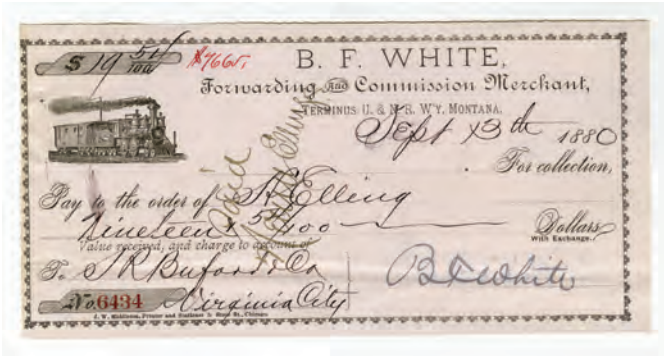 $ 19 51/100
$7665,
B. F. WHITE,
Forwarding And Commission Merchant,
TERMINUS U. & N. R. W'Y. MONTANA.
Sept 13th 1880
For collection,
Pay to the order of H Elling
Nineteen 51/100 Dollars
With Exchange.
Value received, and charge to account of
To S R Buford & Co
B F White
No. 6434 Virginia City
Paid
Henry Elling